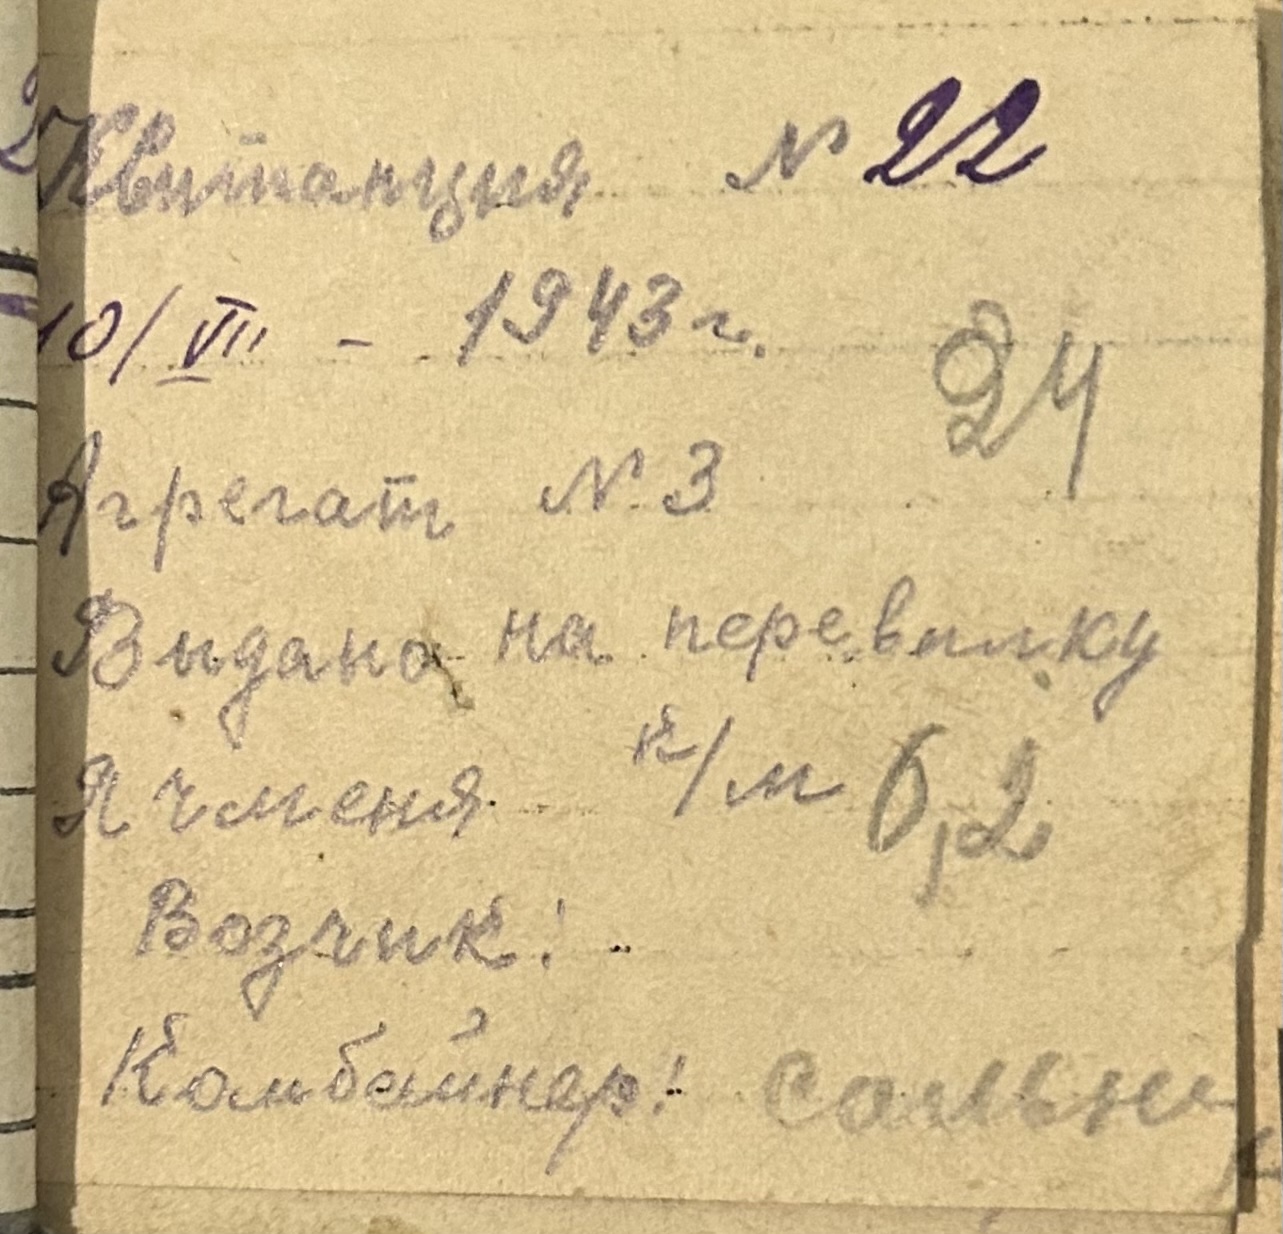 Квитанция N 22
10/VII - 1943 г.
24
Агрегат N 3
Выдана на перевалку
Ячменя к/м 6,2
Возчик:
Комбайнер: